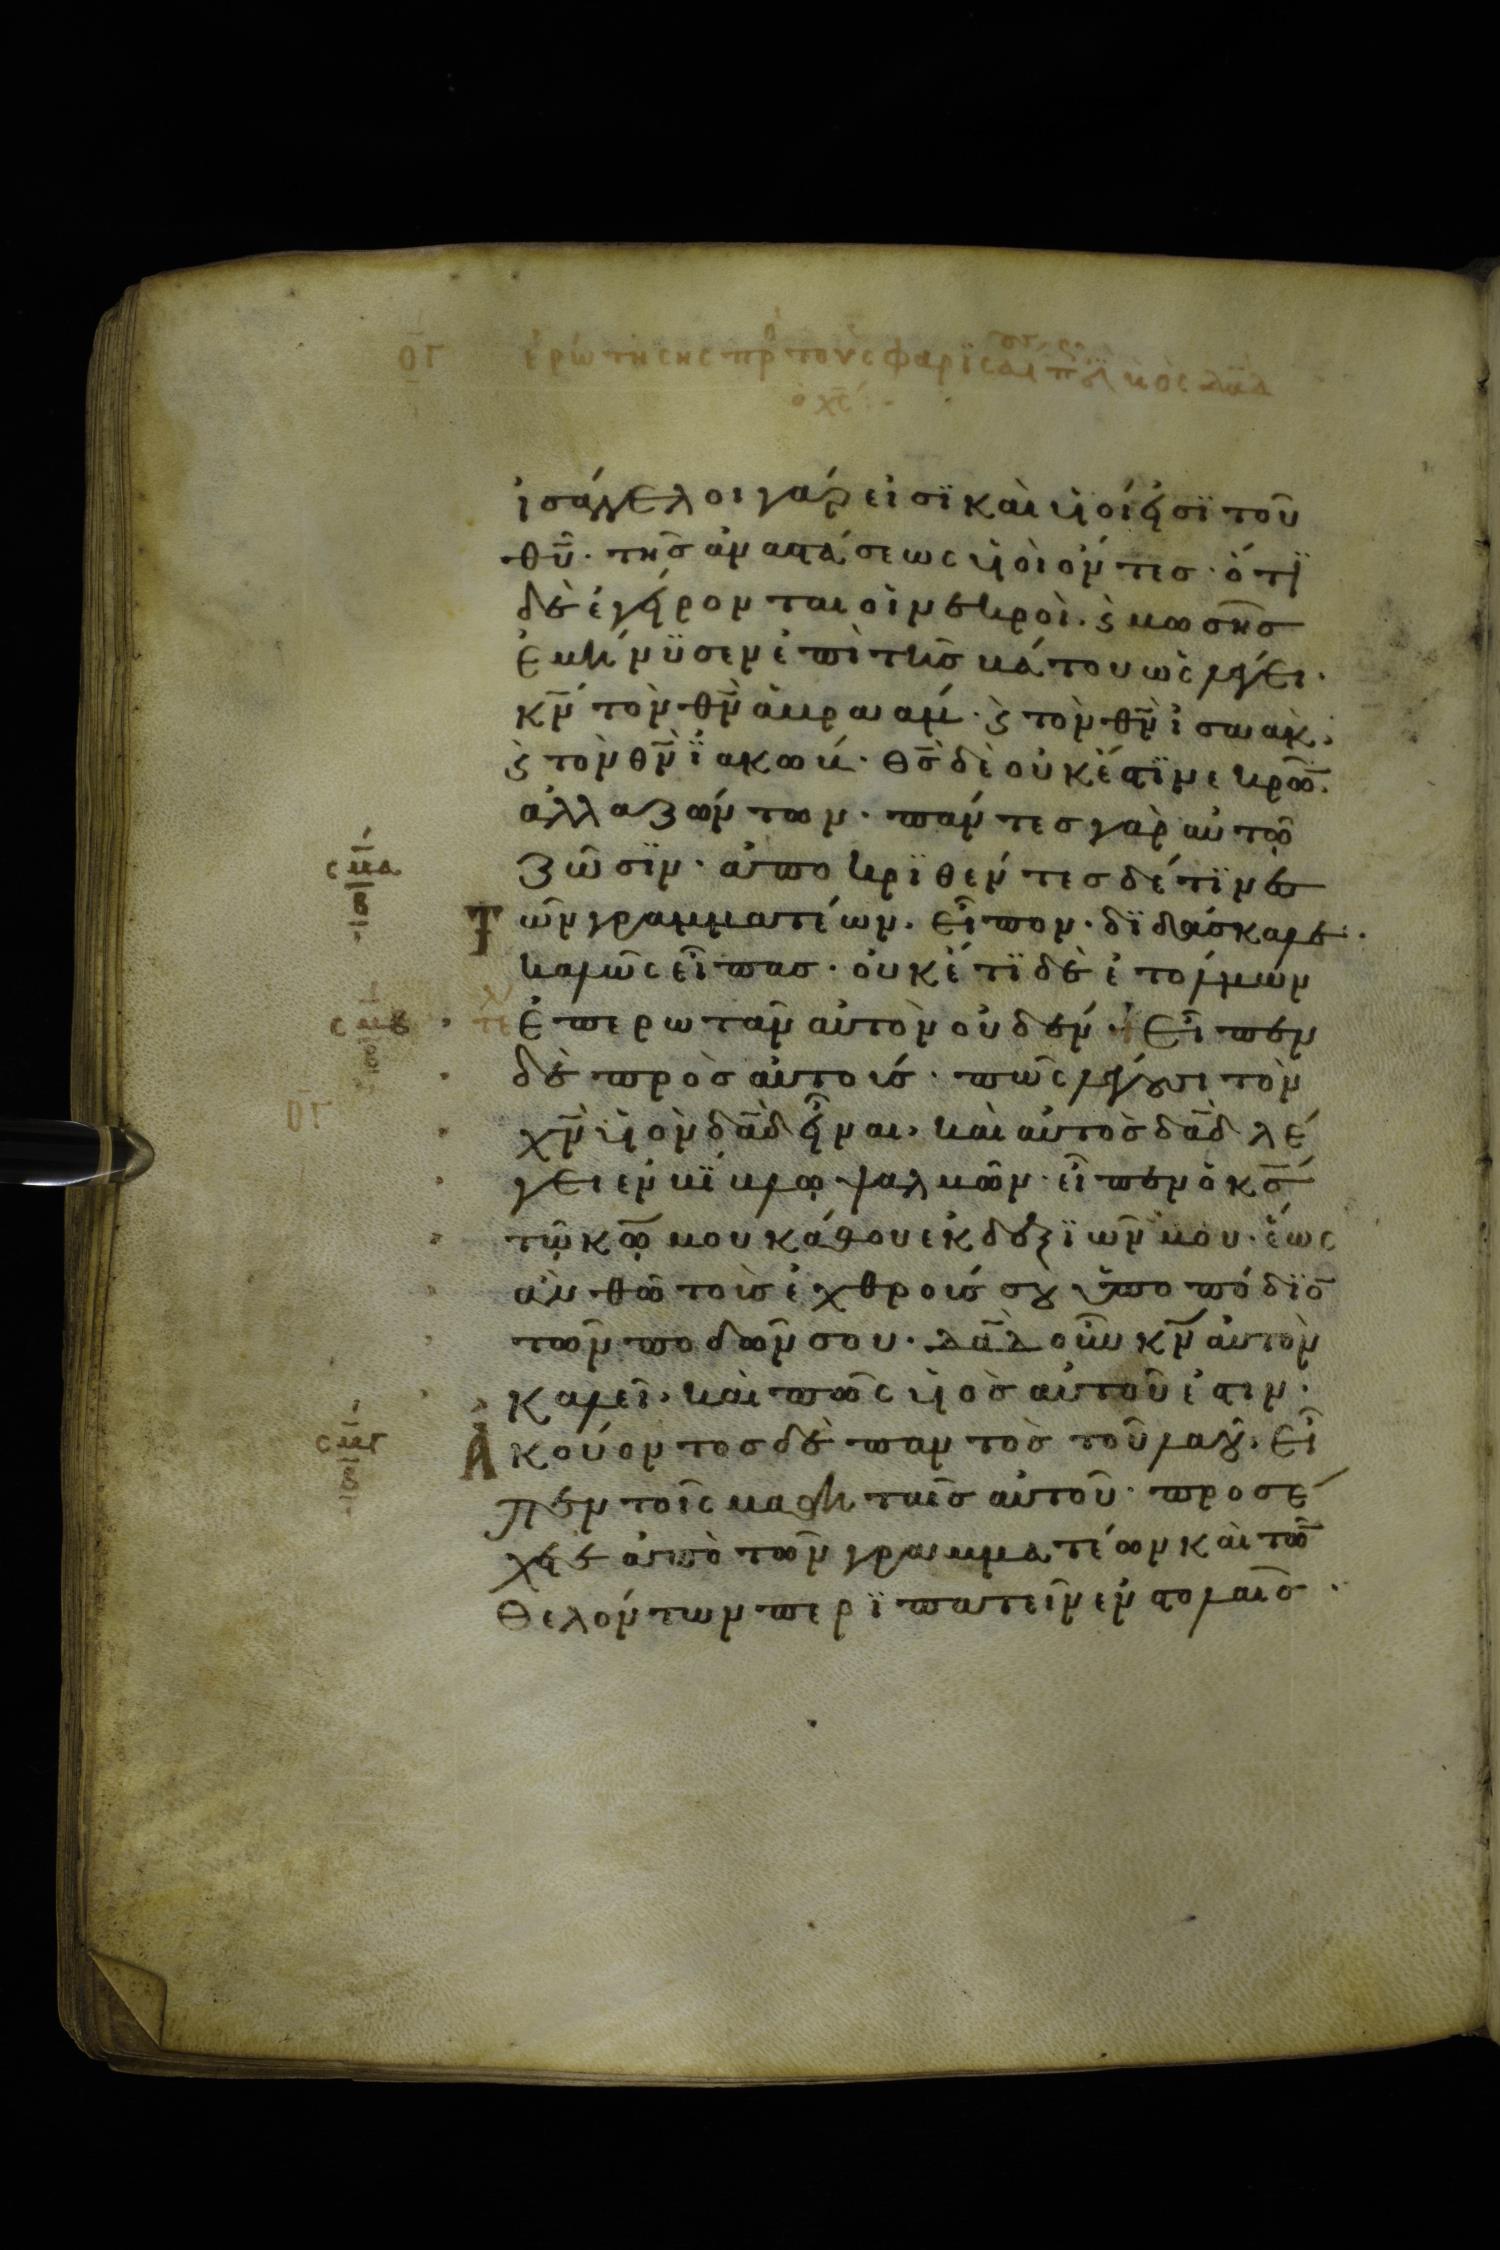 ογ ἐρώτησης πρ τοὺς φαρϊσαι
ὁ χς
ἰσάγγελοι γάρ εἰσϊ καὶ υἱοί εἰσϊ τοῦ
θυ· τῆσ ἀναστάσεως υἱοὶ όντεσ· ότϊ
δὲ ἐγείρονται οἱ νεκροὶ· ϛ μωσῆσ
ἐμήνϋσεν ἐπὶ τῆσ βάτου ὡς λέγει·
κν τὸν θν ἀβρααμ· ϛ τὸν θν ἰσαακ·
ϛ τὸν θν ϊακωβ· θσ δὲ οὐκ έστϊ νεκρῶ·
ἀλλα ζώντων· πάντεσ γὰρ αὐτῶ
ζῶσϊν· ἀποκρϊθεντεσ δέ τϊνεσ
σμα
β
τῶν γραμματέων· εἶπον· δϊδάσκαλε·
καλῶς εἶπασ· οὐκέτϊ δὲ ἐτόλμων
σμβ
β
ἐπερωτᾶν αὐτὸν οὐδέν· εἶπεν
δὲ πρὸσ αὐτοισ· πῶς λέγουσι τὸν
ογ
χν υἱὸν δαδ εἶναι· καὶ αὐτὸσ δαδ λέ
γει ἐν βίβλω ψαλμῶν· εἶπεν ὁ κσ
τῶ κω μου κάθου ἐκ δεξϊῶν μου· έως
ἀν θῶ τοὶσ ἐχθροισ σου ὑποπόδϊο
τῶν ποδῶν σου· δαδ οὖν κν αὐτὸν
καλεῖ· καὶ πῶς υἱὸσ αὐτοῦ ἐστιν·
σμγ
β
Ἀκούοντοσ δὲ παντὸσ τοῦ λαοῦ· εἶ
πεν τοῖς μαθηταῖσ αὐτοῦ· προσέ
χετε ἀπὸ τῶν γραμματέων καὶ τῶ
θελόντων περϊπατεῖν ἐν στολαῖσ·